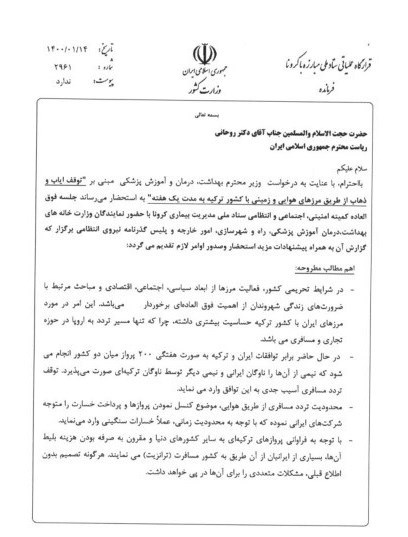 قرارگاه عملیاتی ستاد ملی مبارزه با کرونا
فرمانده
جمهوری اسلامی ایران
وزارت کشور
تاریخ: ۱۴۰۰/۰۱/۱۴
شماره: ۲۹۶۱
پیوست: ندارد
بسمه تعالی
حضرت حجت الاسلام والمسلمین جناب آقای دکتر روحانی
ریاست محترم جمهوری اسلامی ایران
سلام علیکم
بااحترام، با عنایت به درخواست وزیر محترم بهداشت، درمان و آموزش پزشکی مبنی بر "توقف ایاب و
ذهاب از طریق مرزهای هوایی و زمینی با کشور ترکیه به مدت یک هفته" به استحضار می‌رساند جلسه فوق
العاده کمیته امنیتی، اجتماعی و انتظامی ستاد ملی مدیریت بیماری کرونا با حضور نمایندگان وزارت خانه های
بهداشت،درمان آموزش پزشکی، راه و شهرسازی، امور خارجه و پلیس گذرنامه نیروی انتظامی برگزار که
گزارش آن به همراه پیشنهادات مزید استحضار وصدور اوامر لازم تقدیم می گردد:
اهم مطالب مطروحه:
- در شرایط تحریمی کشور، فعالیت مرزها از ابعاد سیاسی، اجتماعی، اقتصادی و مباحث مرتبط با
ضرورت‌های زندگی شهروندان از اهمیت فوق العاده‌ای برخوردار می‌باشد. این امر در مورد
مرزهای ایران با کشور ترکیه حساسیت بیشتری داشته، چرا که تنها مسیر تردد به اروپا در حوزه
تجاری و مسافری می باشد.
- در حال حاضر برابر توافقات ایران و ترکیه به صورت هفتگی ۲۰۰ پرواز میان دو کشور انجام می
شود که نیمی از آن‌ها را ناوگان ایرانی و نیمی دیگر توسط ناوگان ترکیه‌ای صورت می‌پذیرد. توقف
تردد مسافری آسیب جدی به این توافق وارد می نماید.
- محدودیت تردد مسافری از طریق هوایی، موضوع کنسل نمودن پروازها و پرداخت خسارت را متوجه
شرکت‌های ایرانی نموده که با توجه به محدودیت زمانی، عملاً خسارات سنگینی وارد می‌نماید.
- با توجه به فراوانی پروازهای ترکیه‌ای به سایر کشورهای دنیا و مقرون به صرفه بودن هزینه بلیط
آن‌ها، بسیاری از ایرانیان از آن طریق به کشور مسافرت (ترانزیت) می نمایند. هرگونه تصمیم بدون
اطلاع قبلی، مشکلات متعددی را برای آن‌ها در پی خواهد داشت.